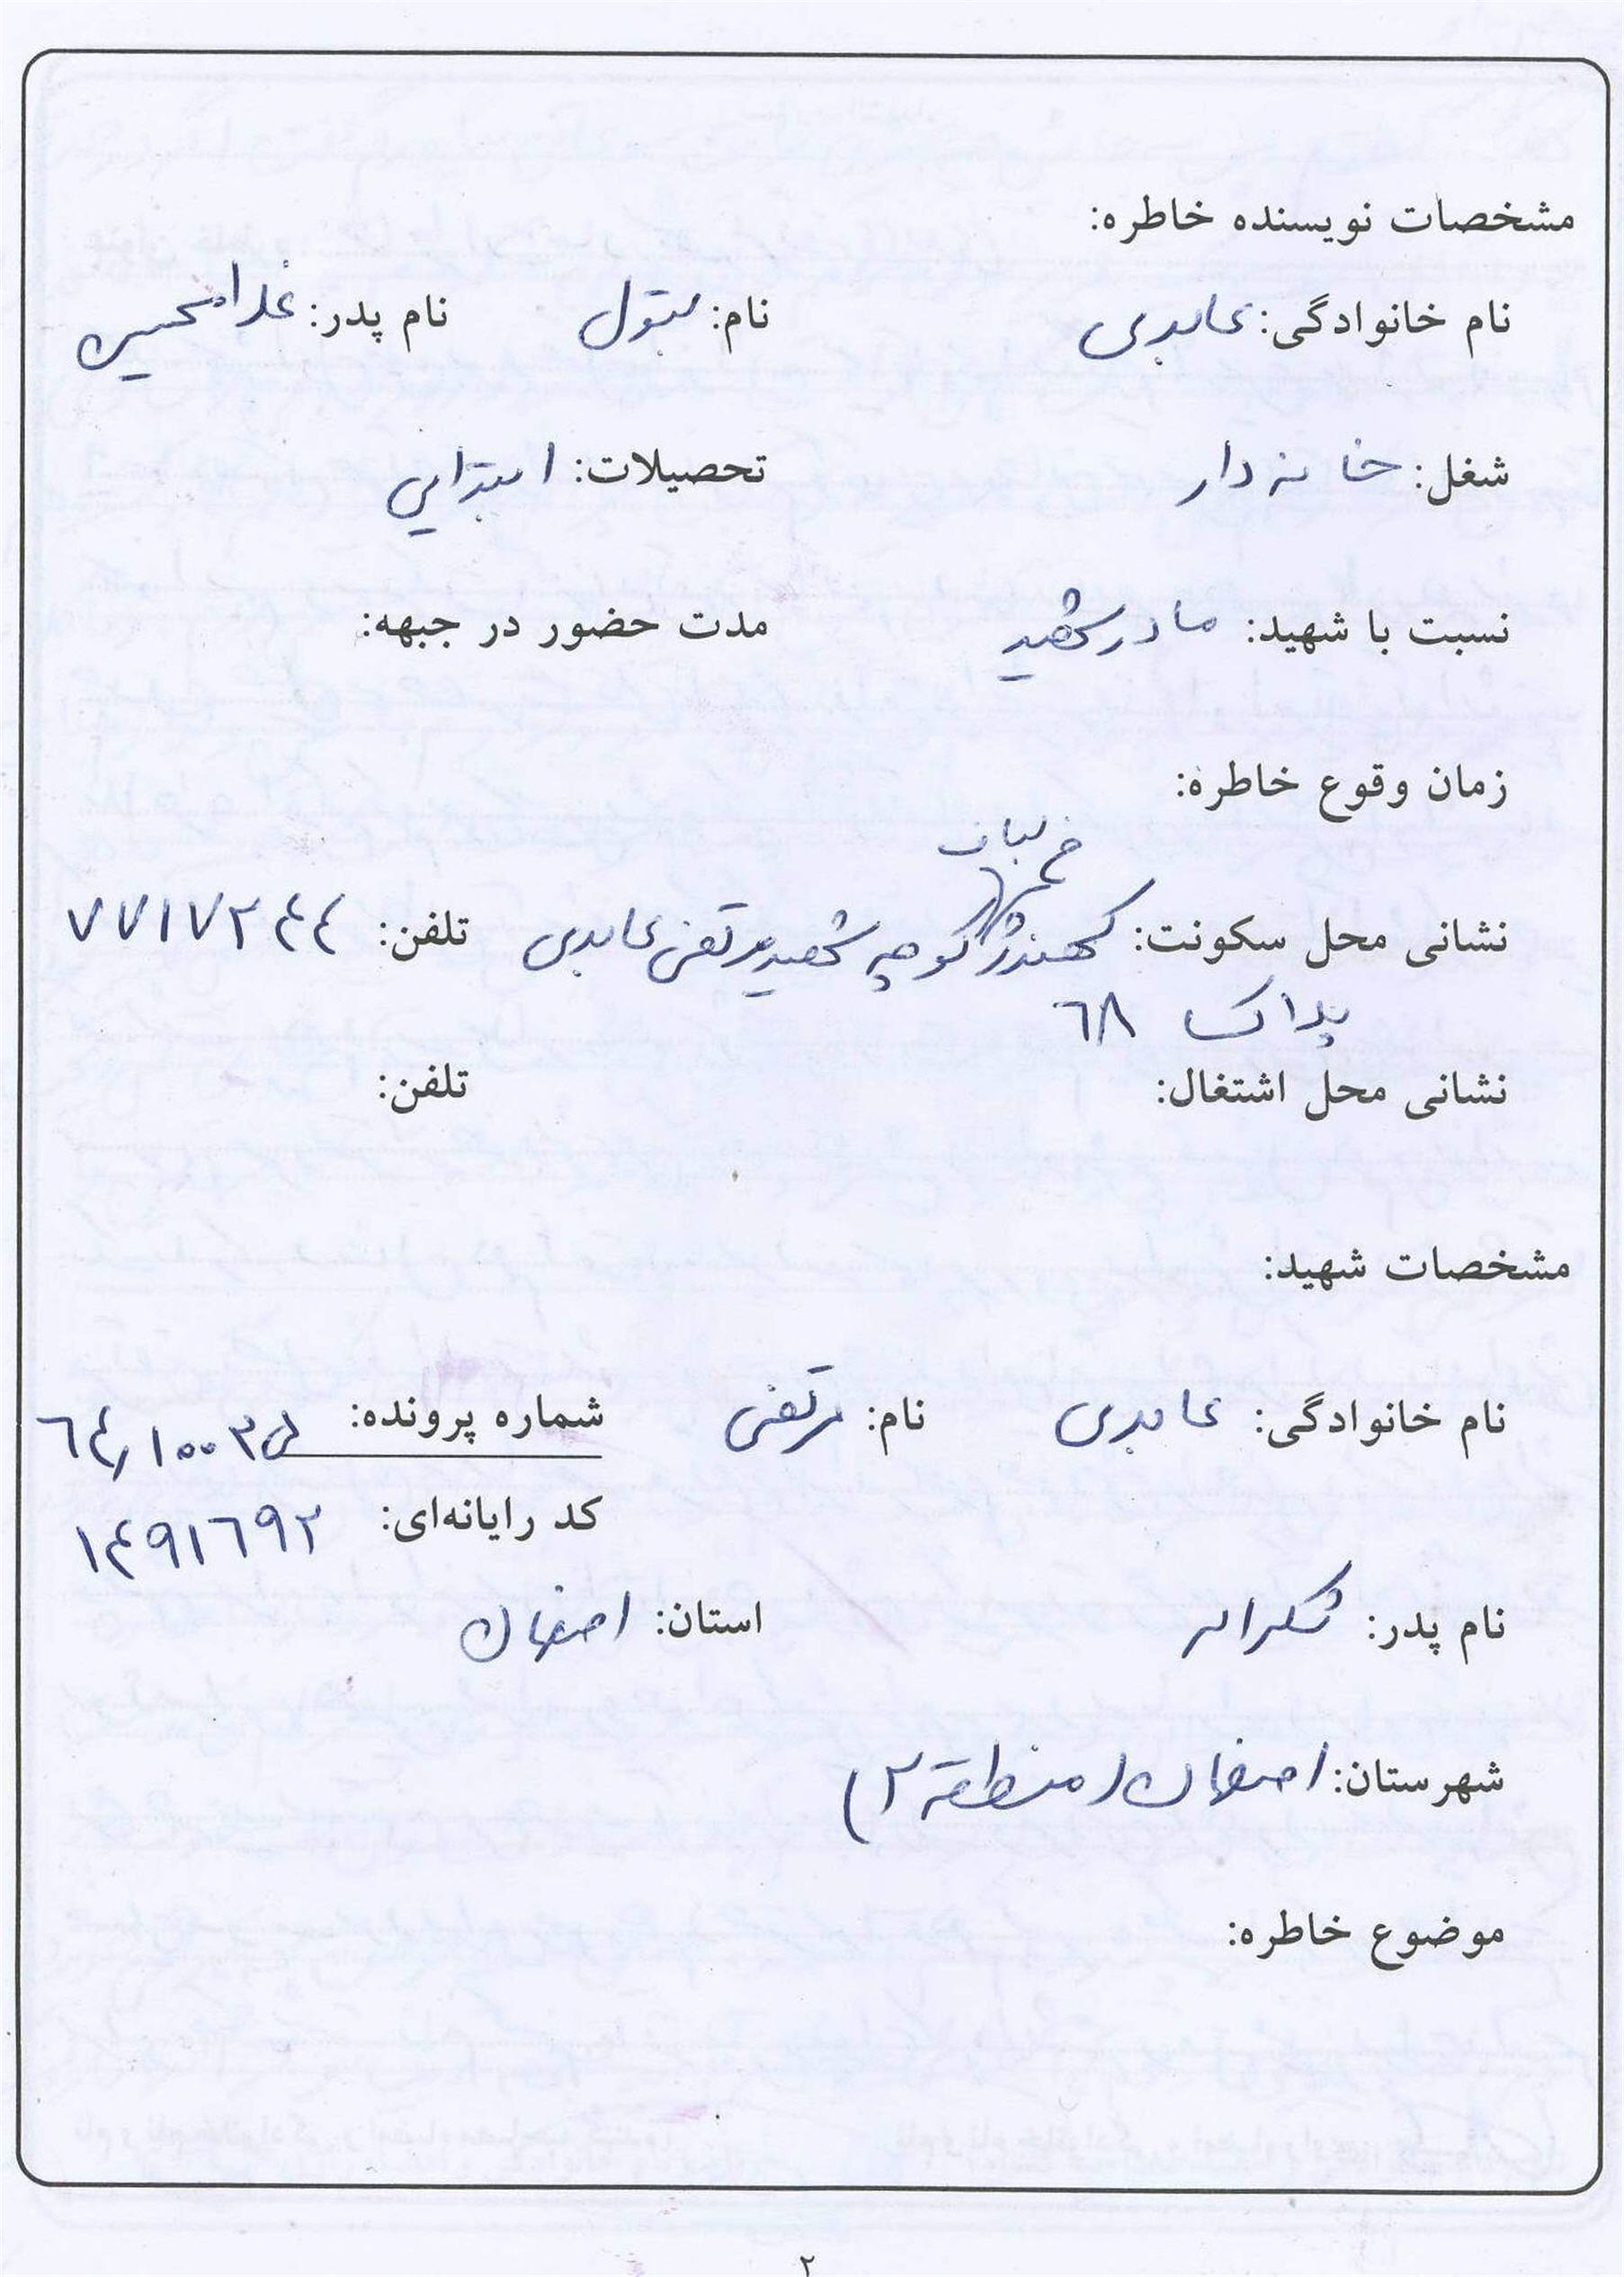 مشخصات نویسنده خاطره:
نام خانوادگی: عابدی نام: بتول نام پدر: غلامحسین
شغل: خانه دار تحصیلات: ابتدایی
نسبت با شهید: مادر شهید مدت حضور در جبهه:
زمان وقوع خاطره:
نشانی محل سکونت: کهندژ کوچه شهید مرتضی عابدی تلفن: ۷۷۱۷۲۴۴
پلاک ۶۸
نشانی محل اشتغال: تلفن:
مشخصات شهید:
نام خانوادگی: عابدی نام: مرتضی شماره پرونده:
کد رایانه‌ای: ۱۴۹۱۶۹۲
نام پدر: شکراله استان: اصفهان
شهرستان: اصفهان (منطقه ۲)
موضوع خاطره:
۲